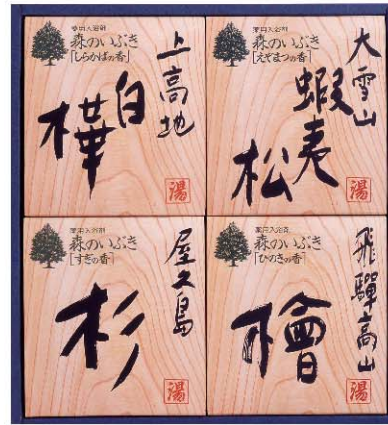 薬用入浴剤
森のいぶき
「しらかばの香」
上高地
白樺
湯
薬用入浴剤
森のいぶき
「えぞまつの香」
大雪山
蝦夷松
湯
薬用入浴剤
森のいぶき
「すぎの香」
屋久島
杉
湯
薬用入浴剤
森のいぶき
「ひのきの香」
飛驒高山
檜
湯